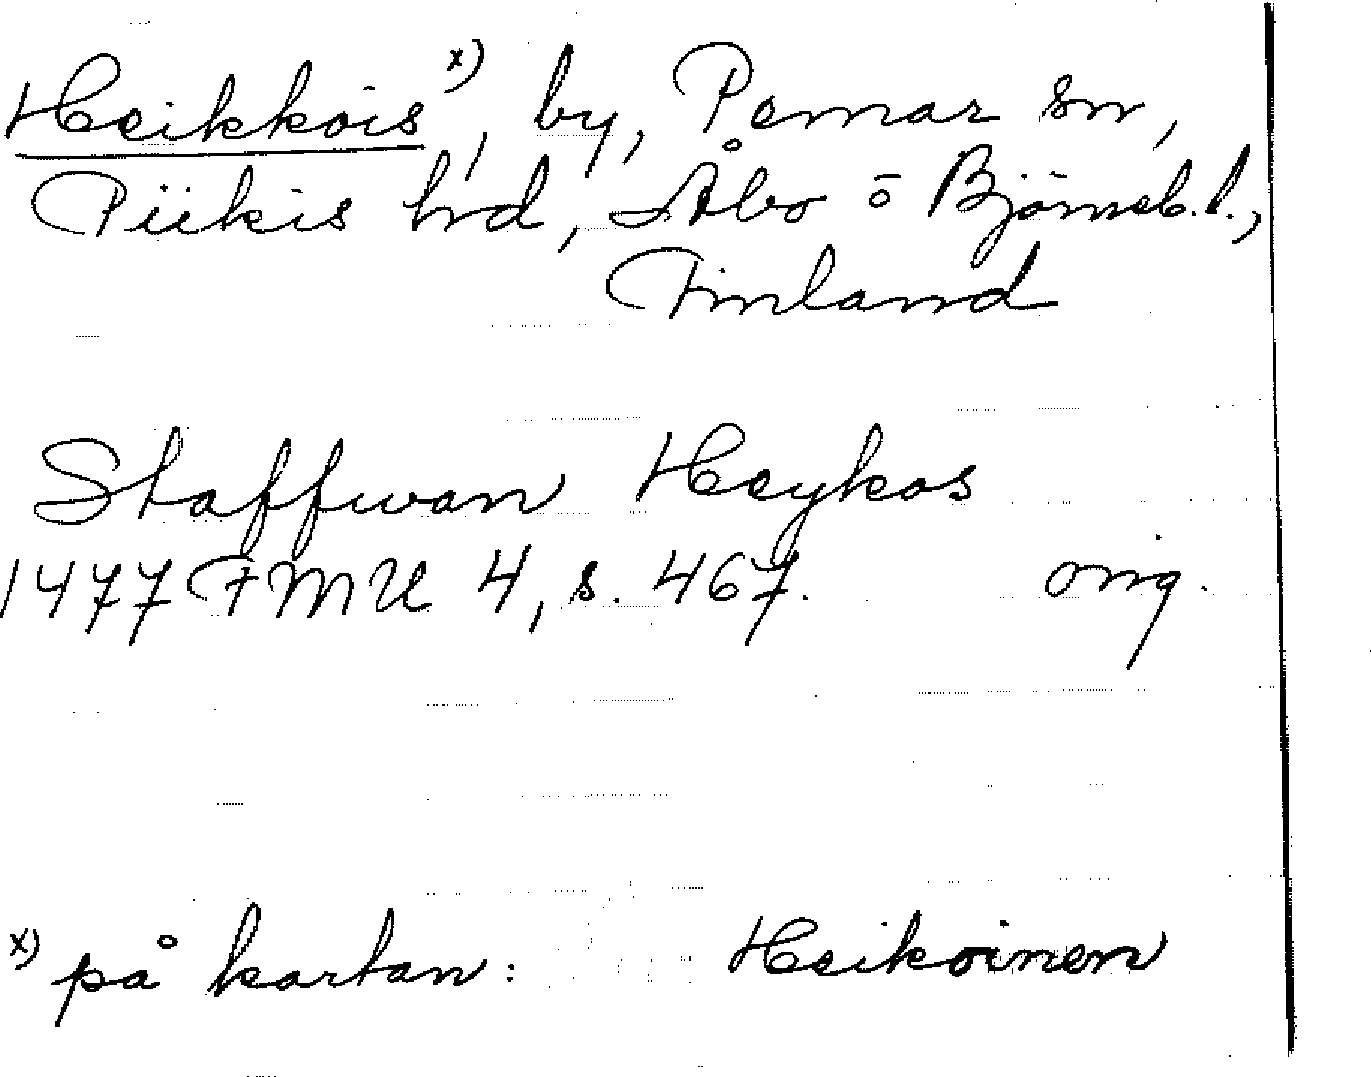 Heikkois x), by, Pemar sn,
Piikis hrd, Åbo o Björneb.l.,
Finland
Staffwan Heykos
1477 FMU 4, s. 467. orig.
x) på kartan: Heikoinen